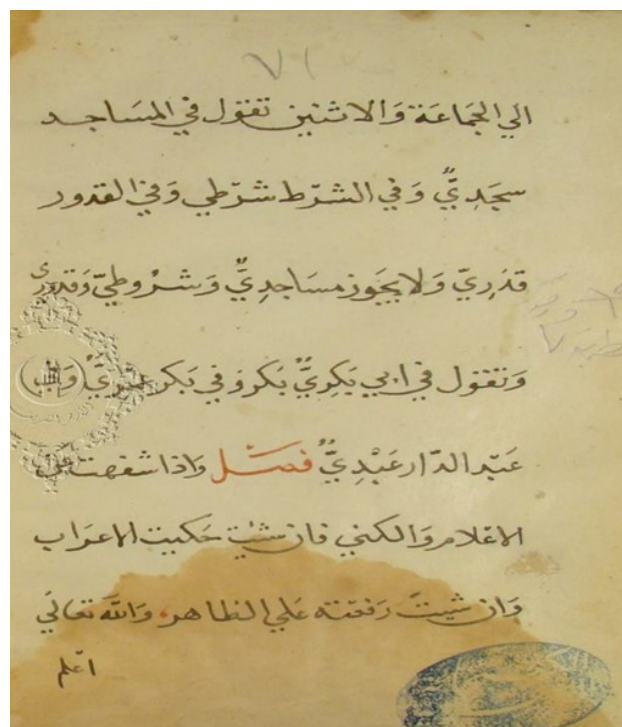 ٧١
الي الجَمَاعَة وَالاثنين تقول في المسَاجد
سجَدِيٌّ وَفي الشرّط شرّطي وَفي القدور
قدَرِيّ وَلا يجَوز مسَاجدِيٌّ وَشروطيّ وَقدوري
وَتقول في ابي بَكرٍ بَكرِيٌّ وفي بَكر
عَبْد الدّار عَبْدِيٌّ فصَل وَاذا شفهت
الاعْلام وَالكني فان شئت حَكيت الاعرَاب
وَان شيتَ رَفعته عَلي الظاهر وَالله تعَالَي
اعْلم